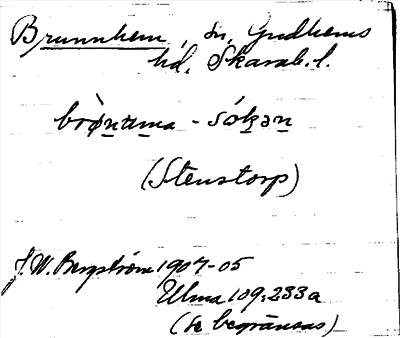 Brunnhem, sn, Gudhems
hd, Skarab. l.
brò̤n̲um̲a - sók̲ən̲
(Stenstorp)
J. W. Bergström 1904-05
Ulma 109:233a
(se begränsas)